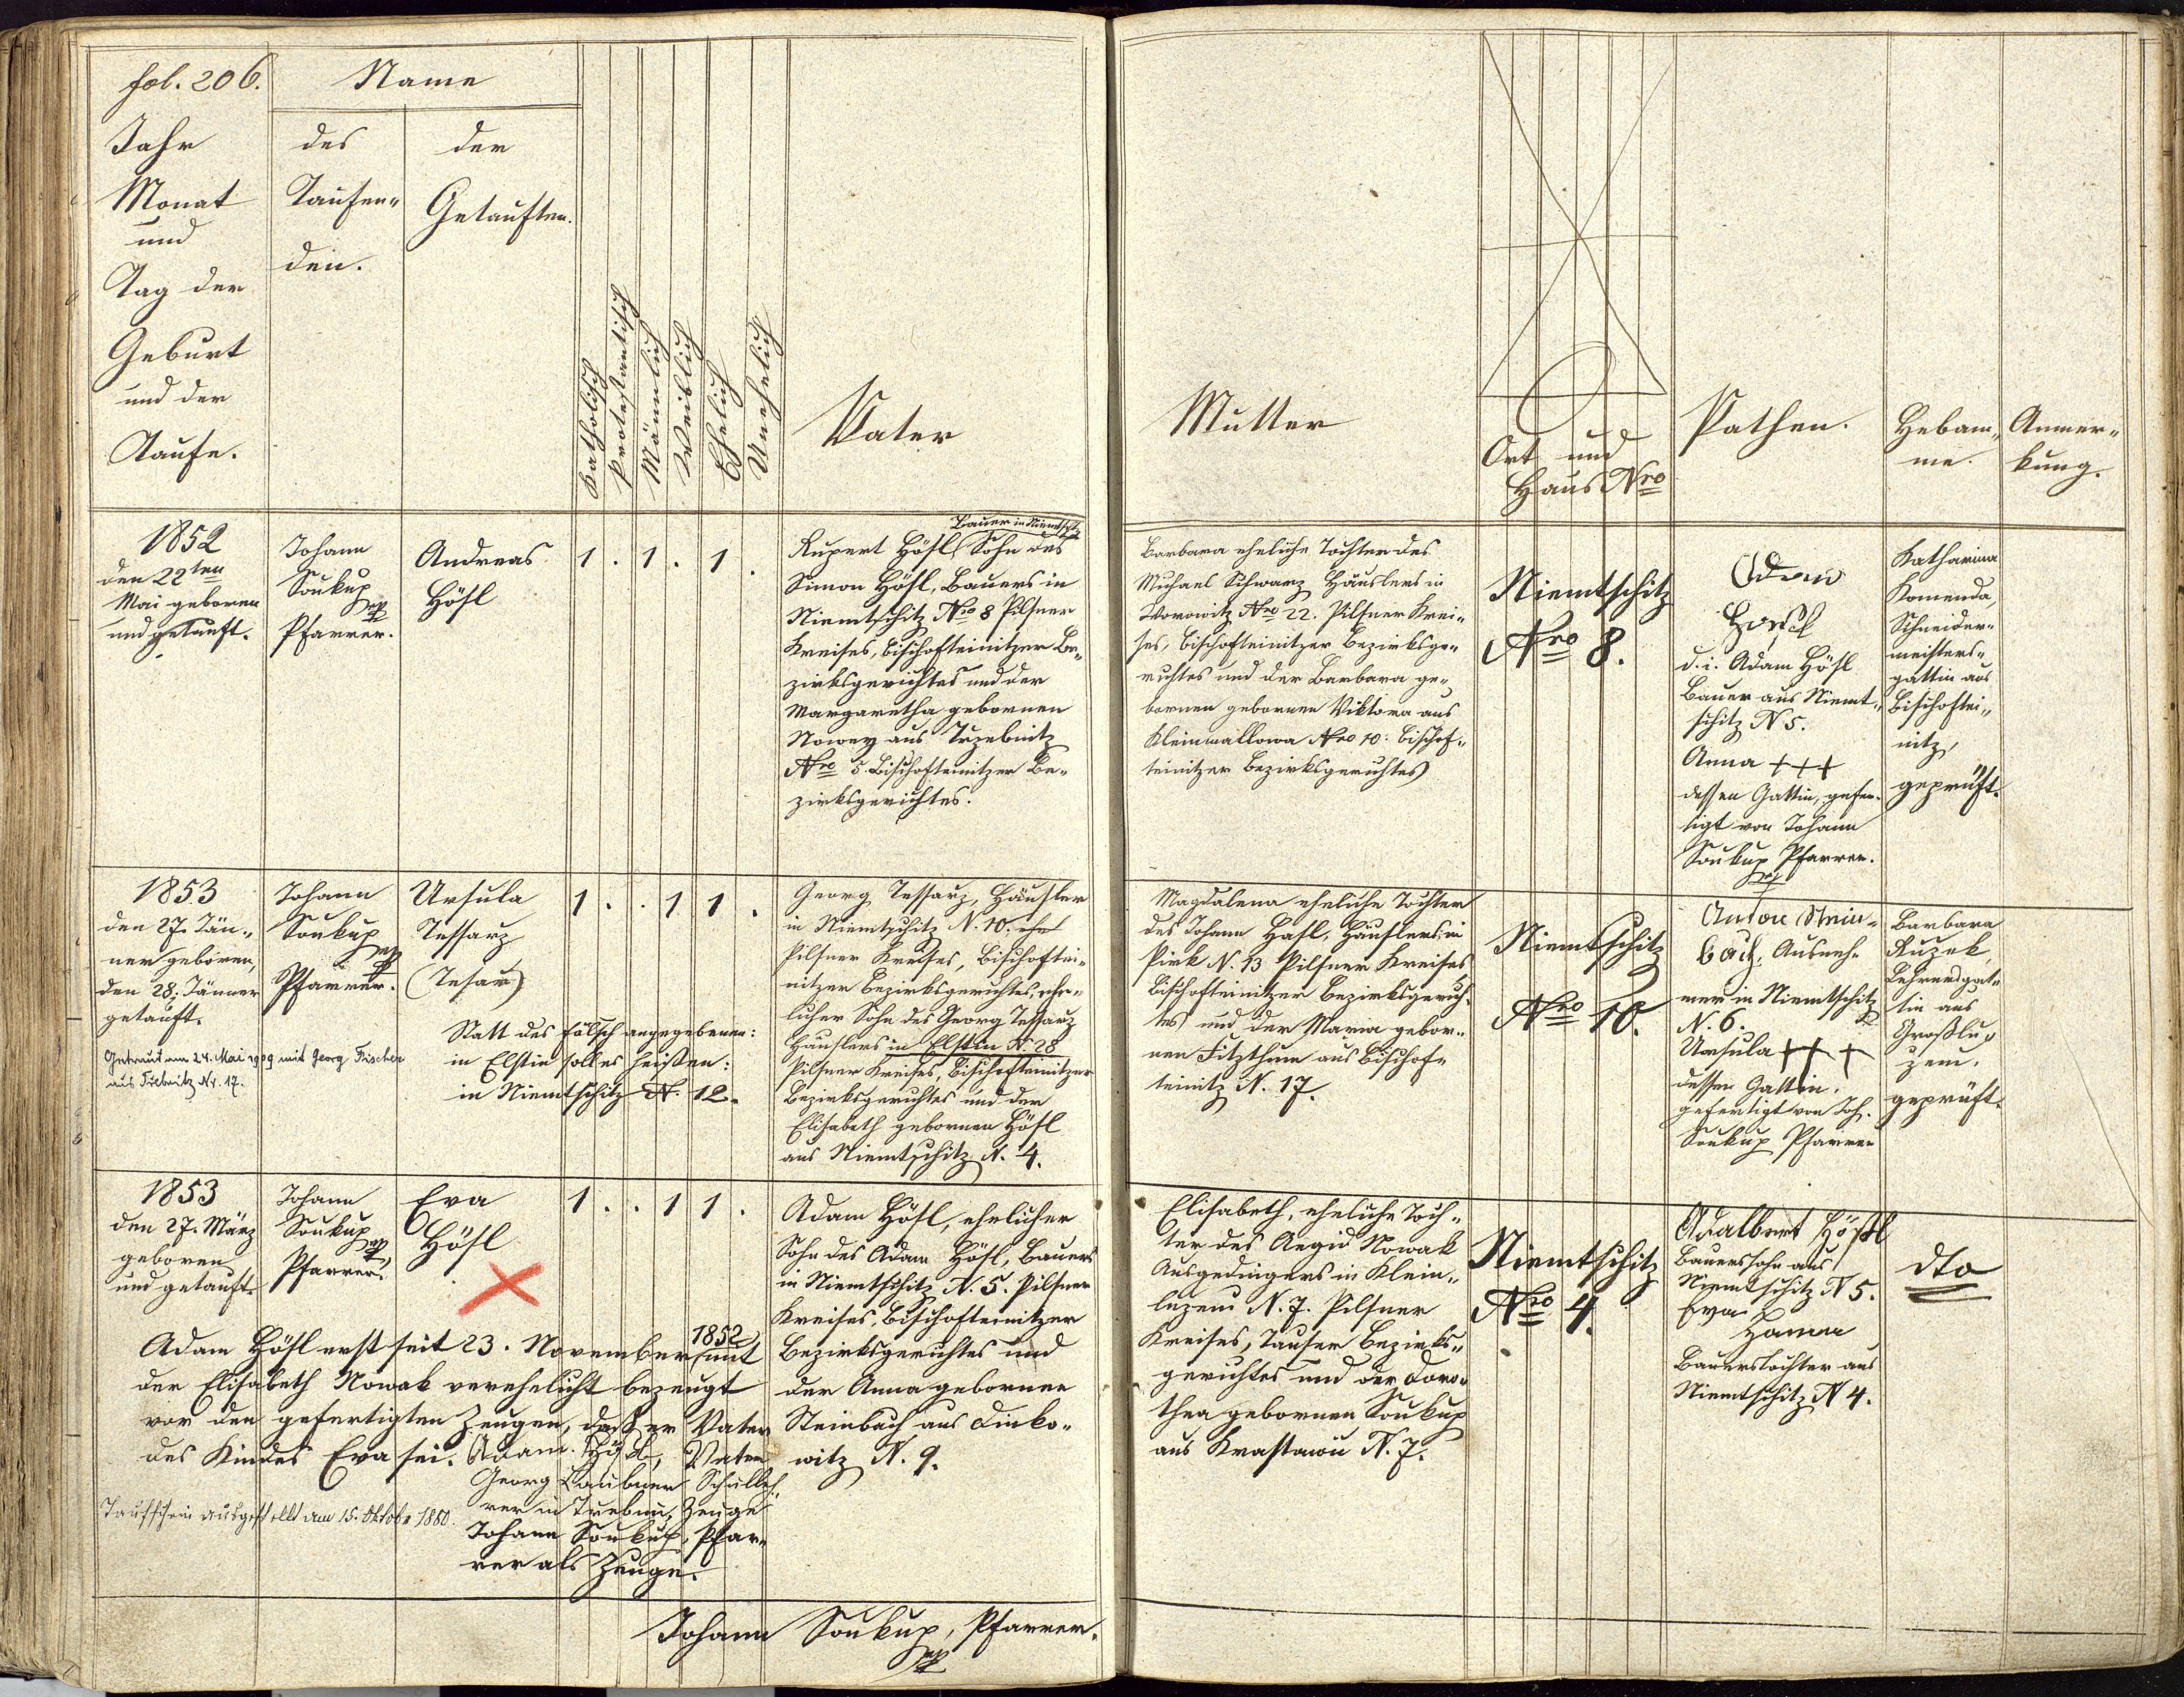 fol. 206.
Name
Jahr
Monat
und
Tag der
Geburt
und der
Taufe.
des
Taufen-
den.
der
Getauften.
Katholisch
Protestantisch
Männlich
Weiblich
Ehelich
Unehelich
Vater
Mutter
Ort und
Haus Nro
Pathen.
Hebam-
me.
Anmer-
kung.
1852
den 22ten
Mai geboren
und getauft.
Johann
Soukup
Pfarrer.
Andreas
Hößl
1 . 1 . 1 .
Bauer in Niemtschitz
Rupert Hößl Sohn des
Simon Hößl, Bauers in
Niemtschitz Nro 8 Pilsner
Kreises, bischofteinitzer Be-
zirksgerichtes und der
Margaretha gebornen
Nowey aus Trzebnitz
Nro 5 Bischofteinitzer Be-
zirksgerichtes.
Barbara eheliche Tochter des
Michael Schwarz Häuslers in
Worowitz Nro 22. Pilsner Krei-
ses, bischofteinitzer Bezirksge-
richtes und der Barbara ge-
bornen gebornen Viktora aus
Kleinmallowa Nro 10: bischof-
teinitzer Bezirksgerichtes
Niemtschitz
Nro 8.
Adam
d. i. Adam Hößl
Bauer aus Niemt-
schitz N 5.
Anna +++
dessen Gattin, gefer-
tigt von Johann
Soukup Pfarrer.
Katharina
Komenda,
Schneider-
meisters-
gattin aus
Bischoftei-
nitz,
geprüft.
1853
den 27. Jän-
ner geboren,
den 28. Jänner
getauft.
Getraut am 24. Mai 1909 mit Georg Fischer
aus Trebnitz Nr. 17.
Johann
Soukup
Pfarrer.
Ursula
Tessarz
(Tesař)
Statt des falsch angegebenen:
in Elstin soll es heißen:
in Niemtschitz N. 12.
1 . . 1 1 .
Georg Tessarz, Häusler
in Niemtschitz N. 10.
Pilsner Kreises, Bischoftei-
nitzer Bezirksgerichtes, ehe-
licher Sohn des Georg Tessarz
Häuslers in Elstin N 28
Pilsner Kreises, Bischofteinitzer
Bezirksgerichtes und der
Elisabeth gebornen Hößl
aus Niemtschitz N. 4.
Magdalena eheliche Tochter
des Johann Haßl, Häuslers in
Pirk N. 13 Pilsner Kreises
Bischofteinitzer Bezirksgerich-
tes und der Maria gebor-
nen Fitzthum aus Bischof-
teinitz N. 17.
Niemtschitz
Nro 10.
Anton Stein-
bach, Ausneh-
mer in Niemtschitz
N. 6.
Ursula +++
dessen Gattin.
gefertigt von Joh.
Soukup Pfarrer
Barbara
Ruzek,
Lehrersgat-
tin aus
Großlu-
zem.
geprüft.
1853
den 27. März
geboren
und getauft.
Johann
Soukup
Pfarrer.
Eva
Hößl
1 . . 1 1 .
Adam Hößl, ehelicher
Sohn des Adam Hößl, Bauers
in Niemtschitz N. 5. Pilsner
Kreises, Bischofteinitzer
Bezirksgerichtes und
der Anna gebornen
Steinbach aus Dinko-
witz N. 9.
Elisabeth, eheliche Toch-
ter des Aegid Nowak
Ausgedingers in Klein-
luzem N. 7. Pilsner
Kreises, Tauser Bezirks-
gerichtes und der Doro-
thea gebornen Soukup
aus Krastawic N. 7.
Niemtschitz
Nro 4.
Adalbert Hößl
Bauerssohn aus
Niemtschitz N 5.
Eva
Hanna
Bauerstochter aus
Niemtschitz N 4.
dto
Adam Hößl erst seit 23. November 1852 mit
der Elisabeth Nowak verehelicht bezeugt
vor den gefertigten Zeugen, daß er Vater
des Kindes Eva sei. Adam Hößl, Vater
Georg Laubner Schulleh-
rer in Trebnitz, Zeuge
Johann Soukup, Pfar-
rer als Zeuge.
Taufschein ausgestellt am 15. Oktober 1880.
Johann Soukup, Pfarrer.